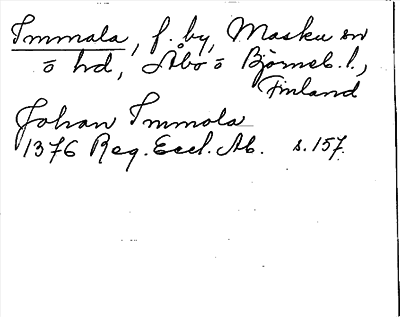 Immala, f. by, Masku sn
o hd, Åbo o Björneb. l.,
Finland
Johan Immola
1376 Reg. Eccl. Ab. s. 157.